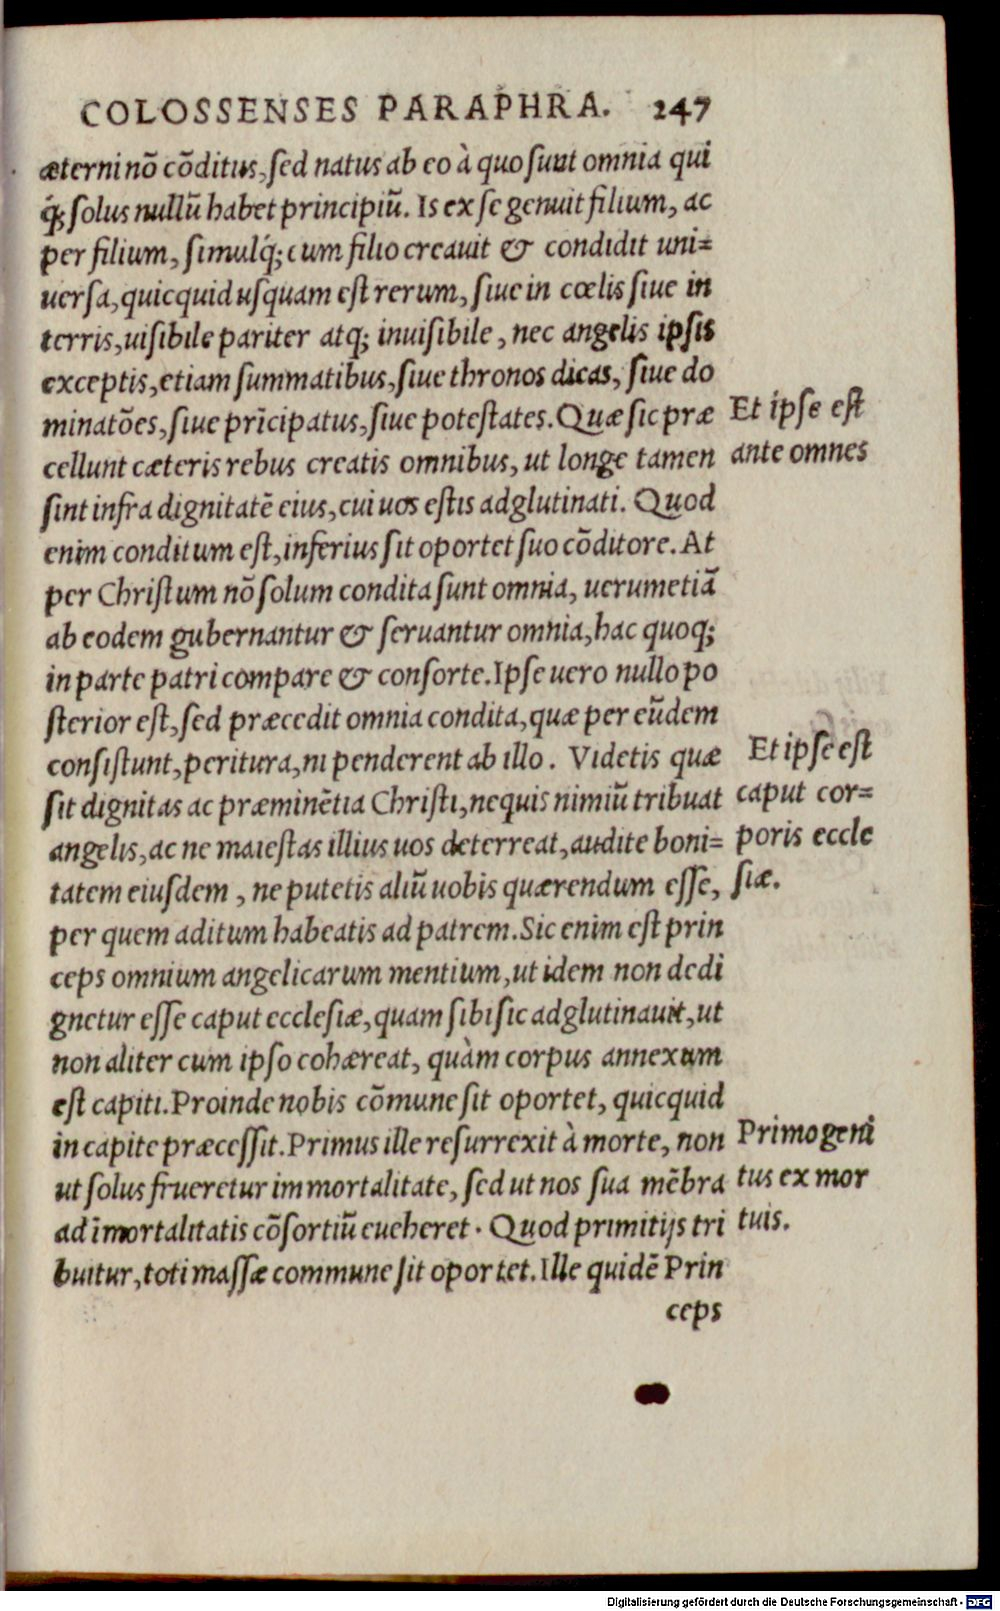 COLOSSENSES PARAPHRA. 247
æterni nō cōditus, sed natus ab eo à quo sunt omnia qui
q́; solus nullū habet principiū. Is ex se genuit filium, ac
per filium, simulq́; cum filio creauit & condidit uni=
uersa, quicquid usquam est rerum, siue in cœlis siue in
terris, uisibile pariter atq; inuisibile, nec angelis ipsis
exceptis, etiam summatibus, siue thronos dicas, siue do
minatōes, siue prīcipatus, siue potestates. Quæ sic præ
cellunt cæteris rebus creatis omnibus, ut longe tamen
sint infra dignitatē eius, cui uos estis adglutinati. Quod
enim conditum est, inferius sit oportet suo cōditore. At
per Christum nō solum condita sunt omnia, uerumetiā
ab eodem gubernantur & seruantur omnia, hac quoq;
in parte patri compare & consorte. Ipse uero nullo po
sterior est, sed præcedit omnia condita, quæ per eūdem
consistunt, peritura, ni penderent ab illo. Videtis quæ
sit dignitas ac præminētia Christi, nequis nimiū tribuat
angelis, ac ne maiestas illius uos deterreat, audite boni=
tatem eiusdem, ne putetis aliū uobis quærendum esse,
per quem aditum habeatis ad patrem. Sic enim est prin
ceps omnium angelicarum mentium, ut idem non dedi
gnetur esse caput ecclesiæ, quam sibi sic adglutinauit, ut
non aliter cum ipso cohæreat, quàm corpus annexum
est capiti. Proinde nobis cōmune sit oportet, quicquid
in capite præcessit. Primus ille resurrexit à morte, non
ut solus frueretur immortalitate, sed ut nos sua mēbra
ad īmortalitatis cōsortiū eueheret. Quod primitijs tri
buitur, toti massæ commune sit oportet. Ille quidē Prin
ceps
Et ipse est
ante omnes
Et ipse est
caput cor=
poris eccle
siæ.
Primogeni
tus ex mor
tuis.
Digitalisierung gefördert durch die Deutsche Forschungsgemeinschaft - DFG